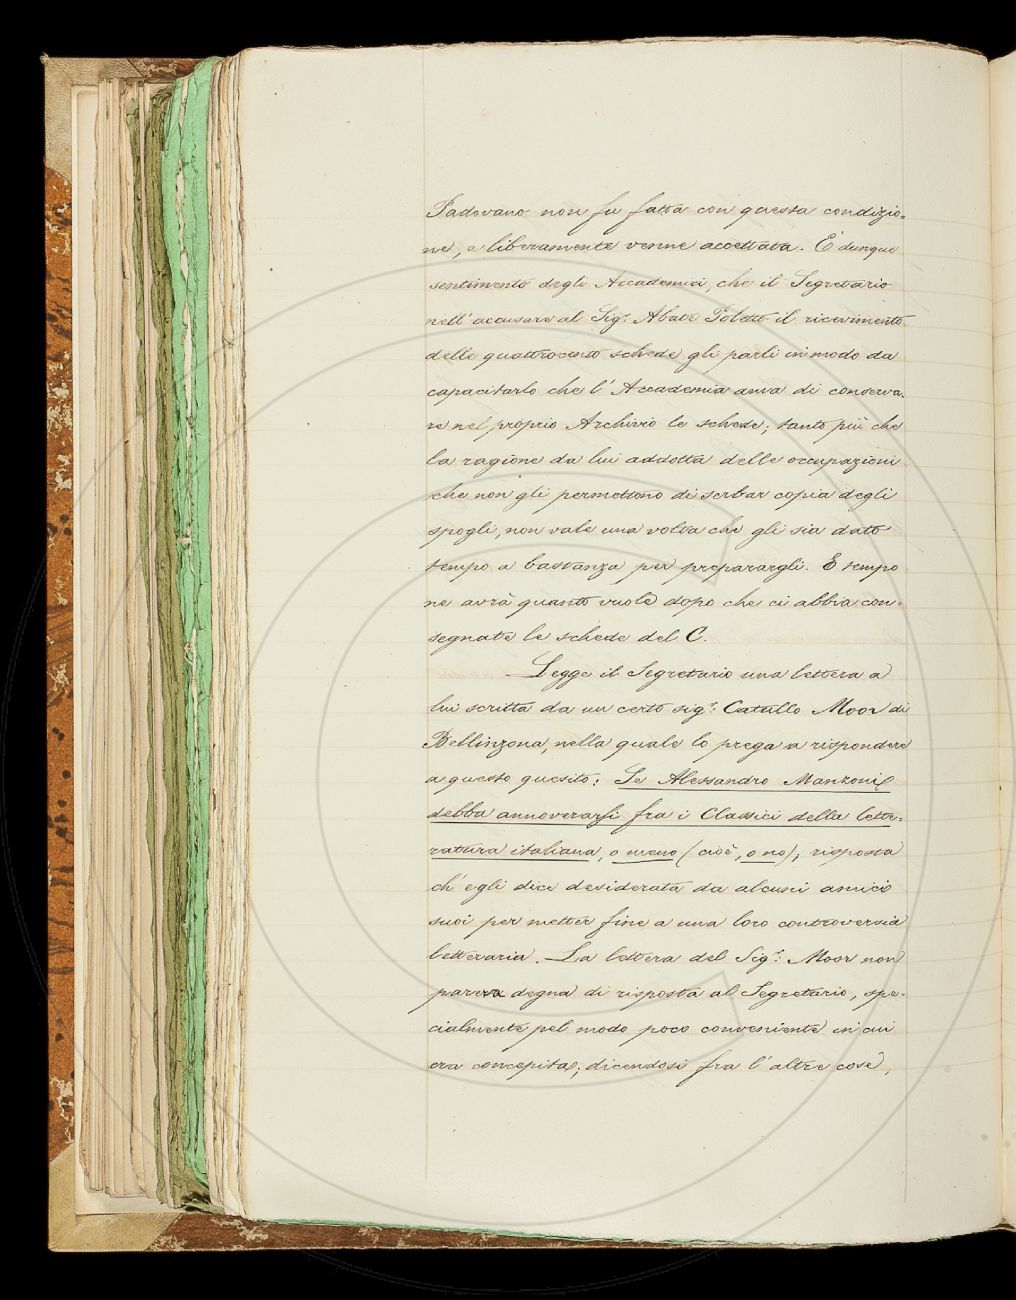 Padovano non fu fatta con questa condizio=
ne, e liberamente venne accettata. È dunque
sentimento degli Accademici, che il Segretario
nell'accusare al Sig.r Abate Poletto il ricevimento
delle quattrocento schede gli parli in modo da
capacitarlo che l'Accademia ama di conserva=
re nel proprio Archivio le schede; tanto più che
la ragione da lui addotta delle occupazioni
che non gli permettono di serbar copia degli
spogli, non vale una volta che gli sia dato
tempo a bastanza per preparargli. E tempo
ne avrà quanto vuole dopo che ci abbia con=
segnate le schede del C.
Legge il Segretario una lettera a
lui scritta da un certo sig.r Catullo Moor di
Bellinzona, nella quale lo prega a rispondere
a questo quesito: Se Alessandro Manzoni
debba annoverarsi fra i Classici della lette=
ratura italiana, o meno (cioè, o no); risposta
ch'egli dice desiderata da alcuni amici
suoi per metter fine a una loro controversia
letteraria. La lettera del Sig.r Moor non
pareva degna di risposta al Segretario, spe=
cialmente pel modo poco conveniente in cui
era concepita; dicendosi fra l'altre cose,